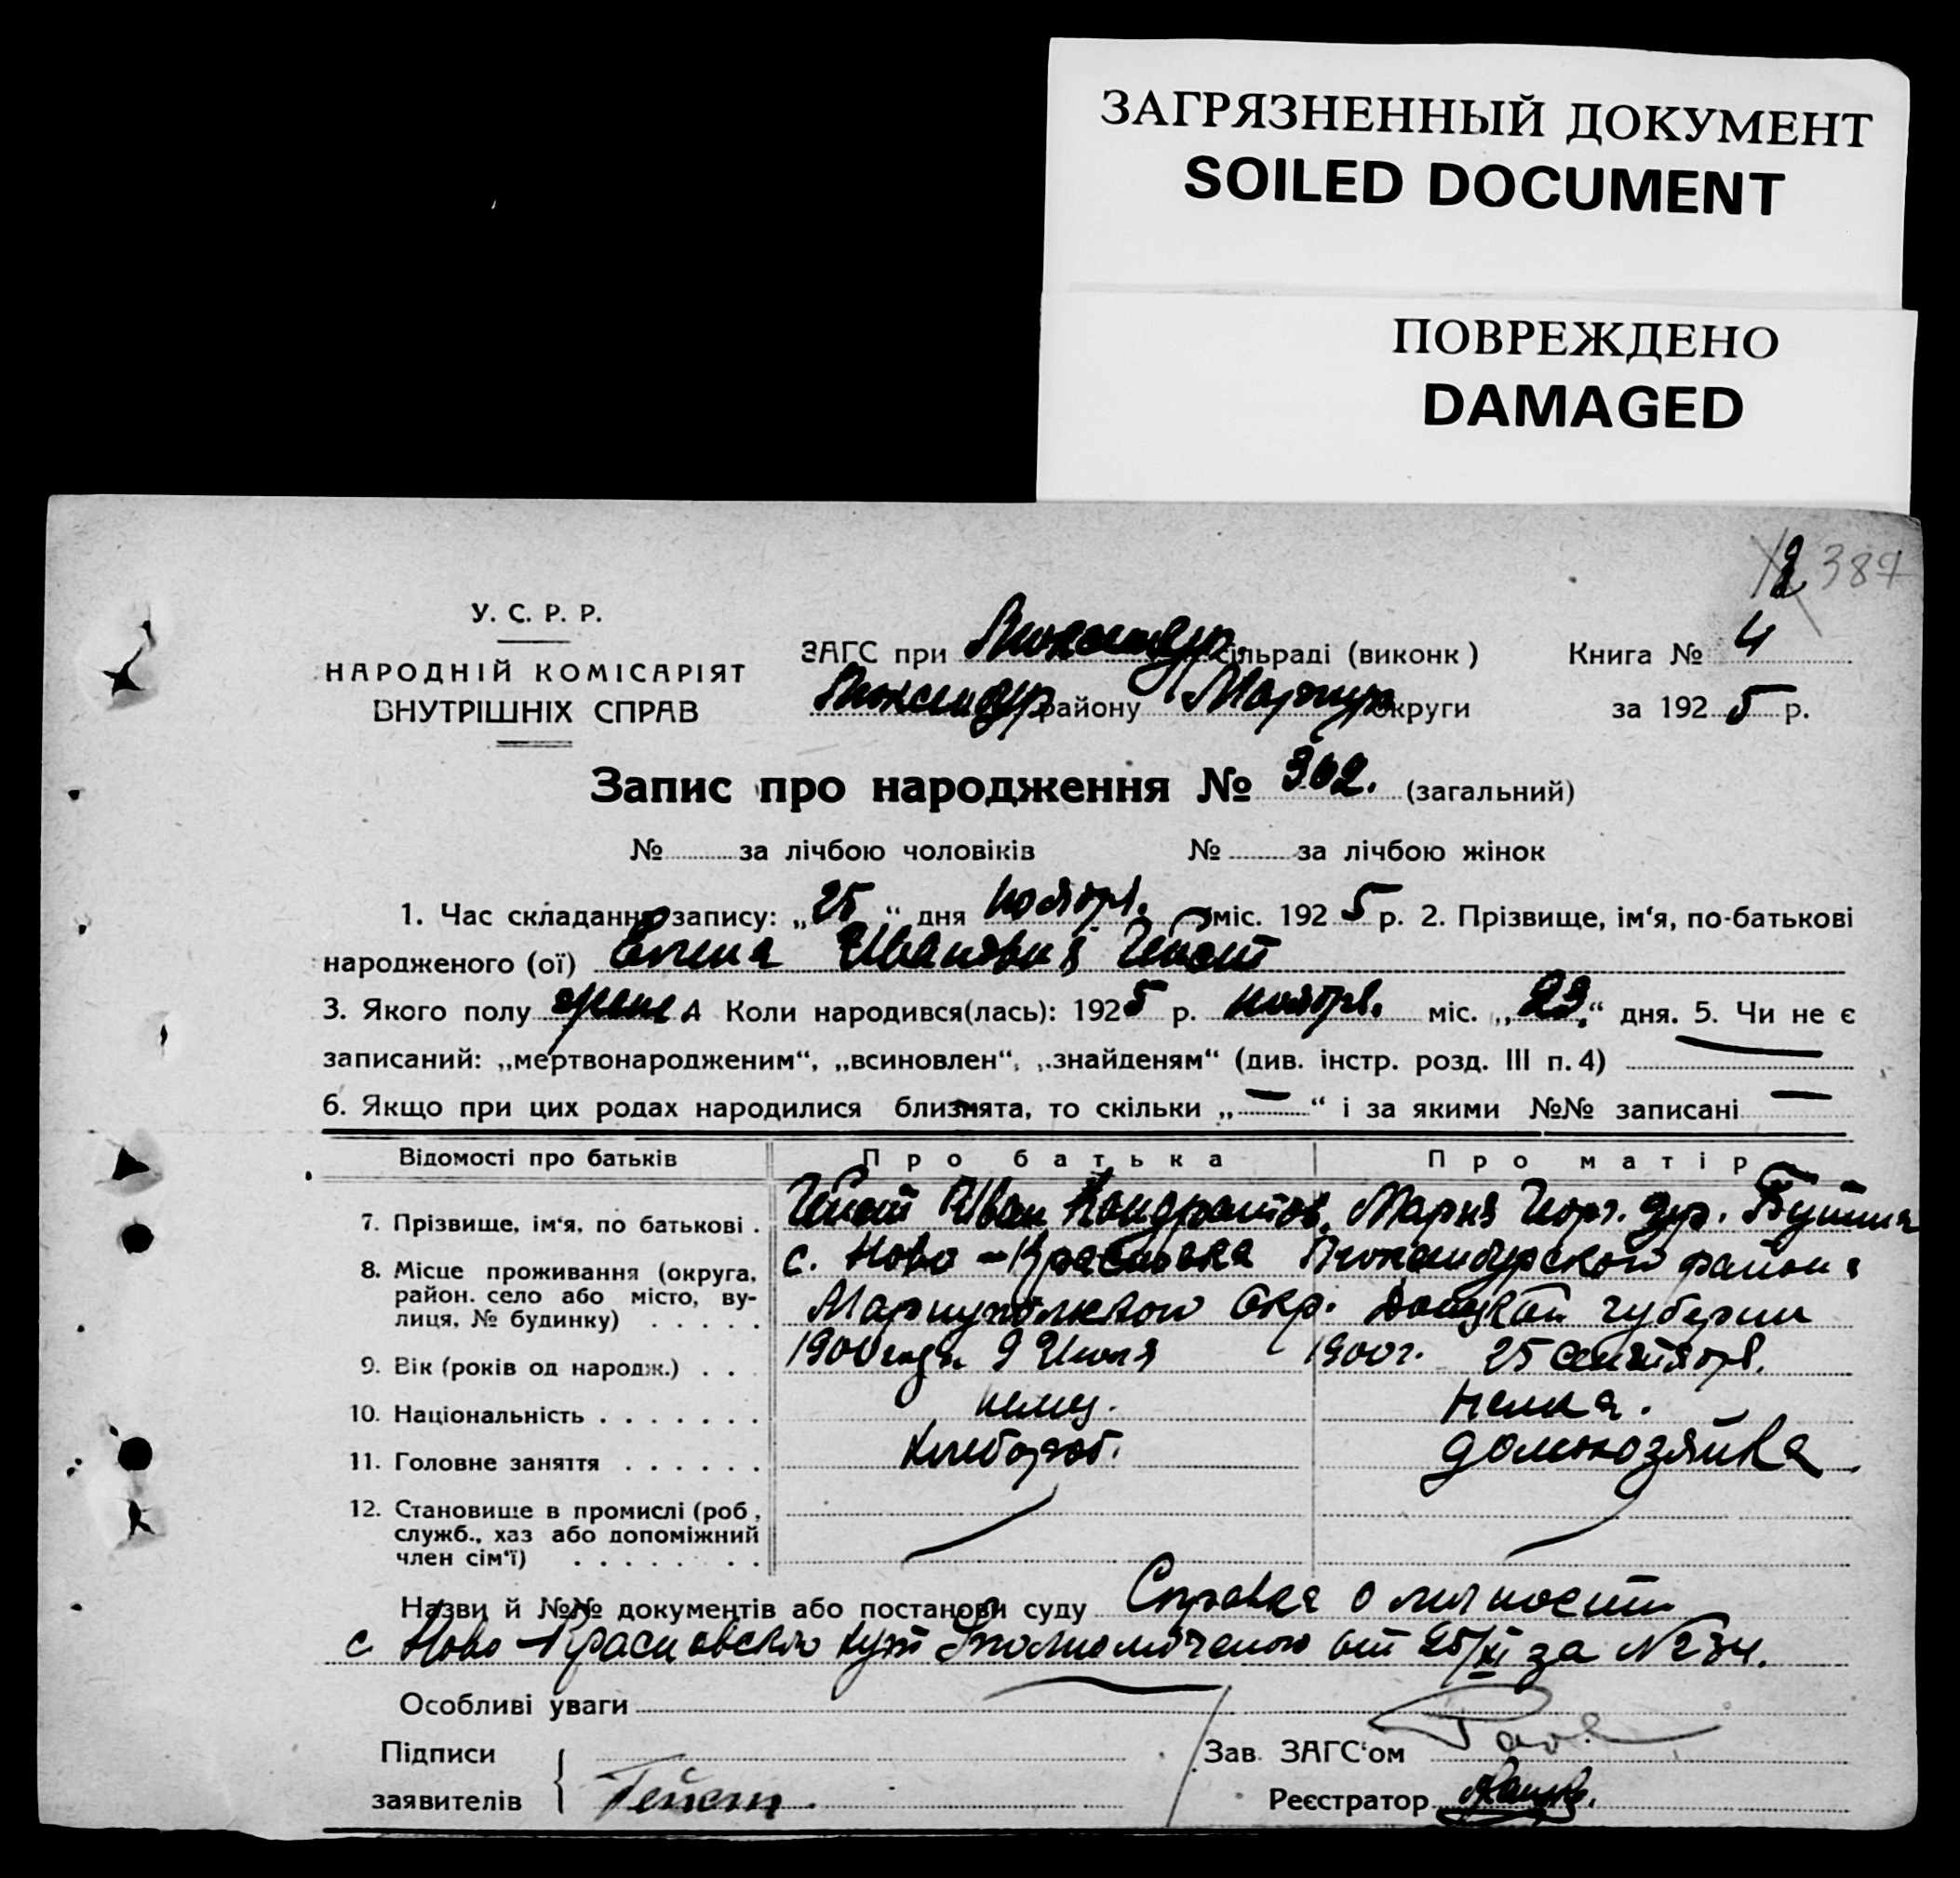 ЗАГРЯЗНЕННЫЙ ДОКУМЕНТ
SOILED DOCUMENT
ПОВРЕЖДЕНО
DAMAGED
387
У. С. Р. Р.
НАРОДНІЙ КОМІСАРІЯТ
ВНУТРІШНІХ СПРАВ
ЗАГС при Люксембур. сільраді (виконк)
Люксембур району Мариуп округи
Книга № 4
за 1925 р.
Запис про народження № 302. (загальний)
№ за лічбою чоловіків № за лічбою жінок
1. Час складання запису: „25“ дня ноября. міс. 1925 р. 2. Прізвище, ім‘я, по-батькові
народженого (ої) Ивановна Гейст
3. Якого полу жен 4 Коли народився(лась): 1925 р. ноябр. міс. „23.“ дня. 5. Чи не є
записаний: „мертвонародженим“, „всиновлен“, „знайденям“ (див. інстр. розд. III п. 4)
6. Якщо при цих родах народилися близнята, то скільки „—“ і за якими №№ записані —
Відомості про батьків Про батька Про матір
7. Прізвище, ім‘я, по батькові . Гейст Иван Кондратов. Мария Георг. ур.
8. Місце проживання (округа, с. Ново-Красновка Люксембурского района
район. село або місто, ву-
лиця, № будинку) . . . . . Мариупольской Окр. Донецкой губернии
9. Вік (років од народж.) . . 1900 года 9 Июля 1900 г. 25 сентября.
10. Національність . . . . . . . немец. немка.
11. Головне заняття . . . . . . хлебороб. домохозяйка
12. Становище в промислі (роб,
служб., хаз або допоміжний
член сім‘ї) . . . . . . . .
Назви й №№ документів або постанови суду Справка о личности
с Ново-Красновского Уполномоченого от 25/XI за № 234.
Особливі уваги
Підписи
заявителів Гейст.
Зав. ЗАГС‘ом
Реєстратор